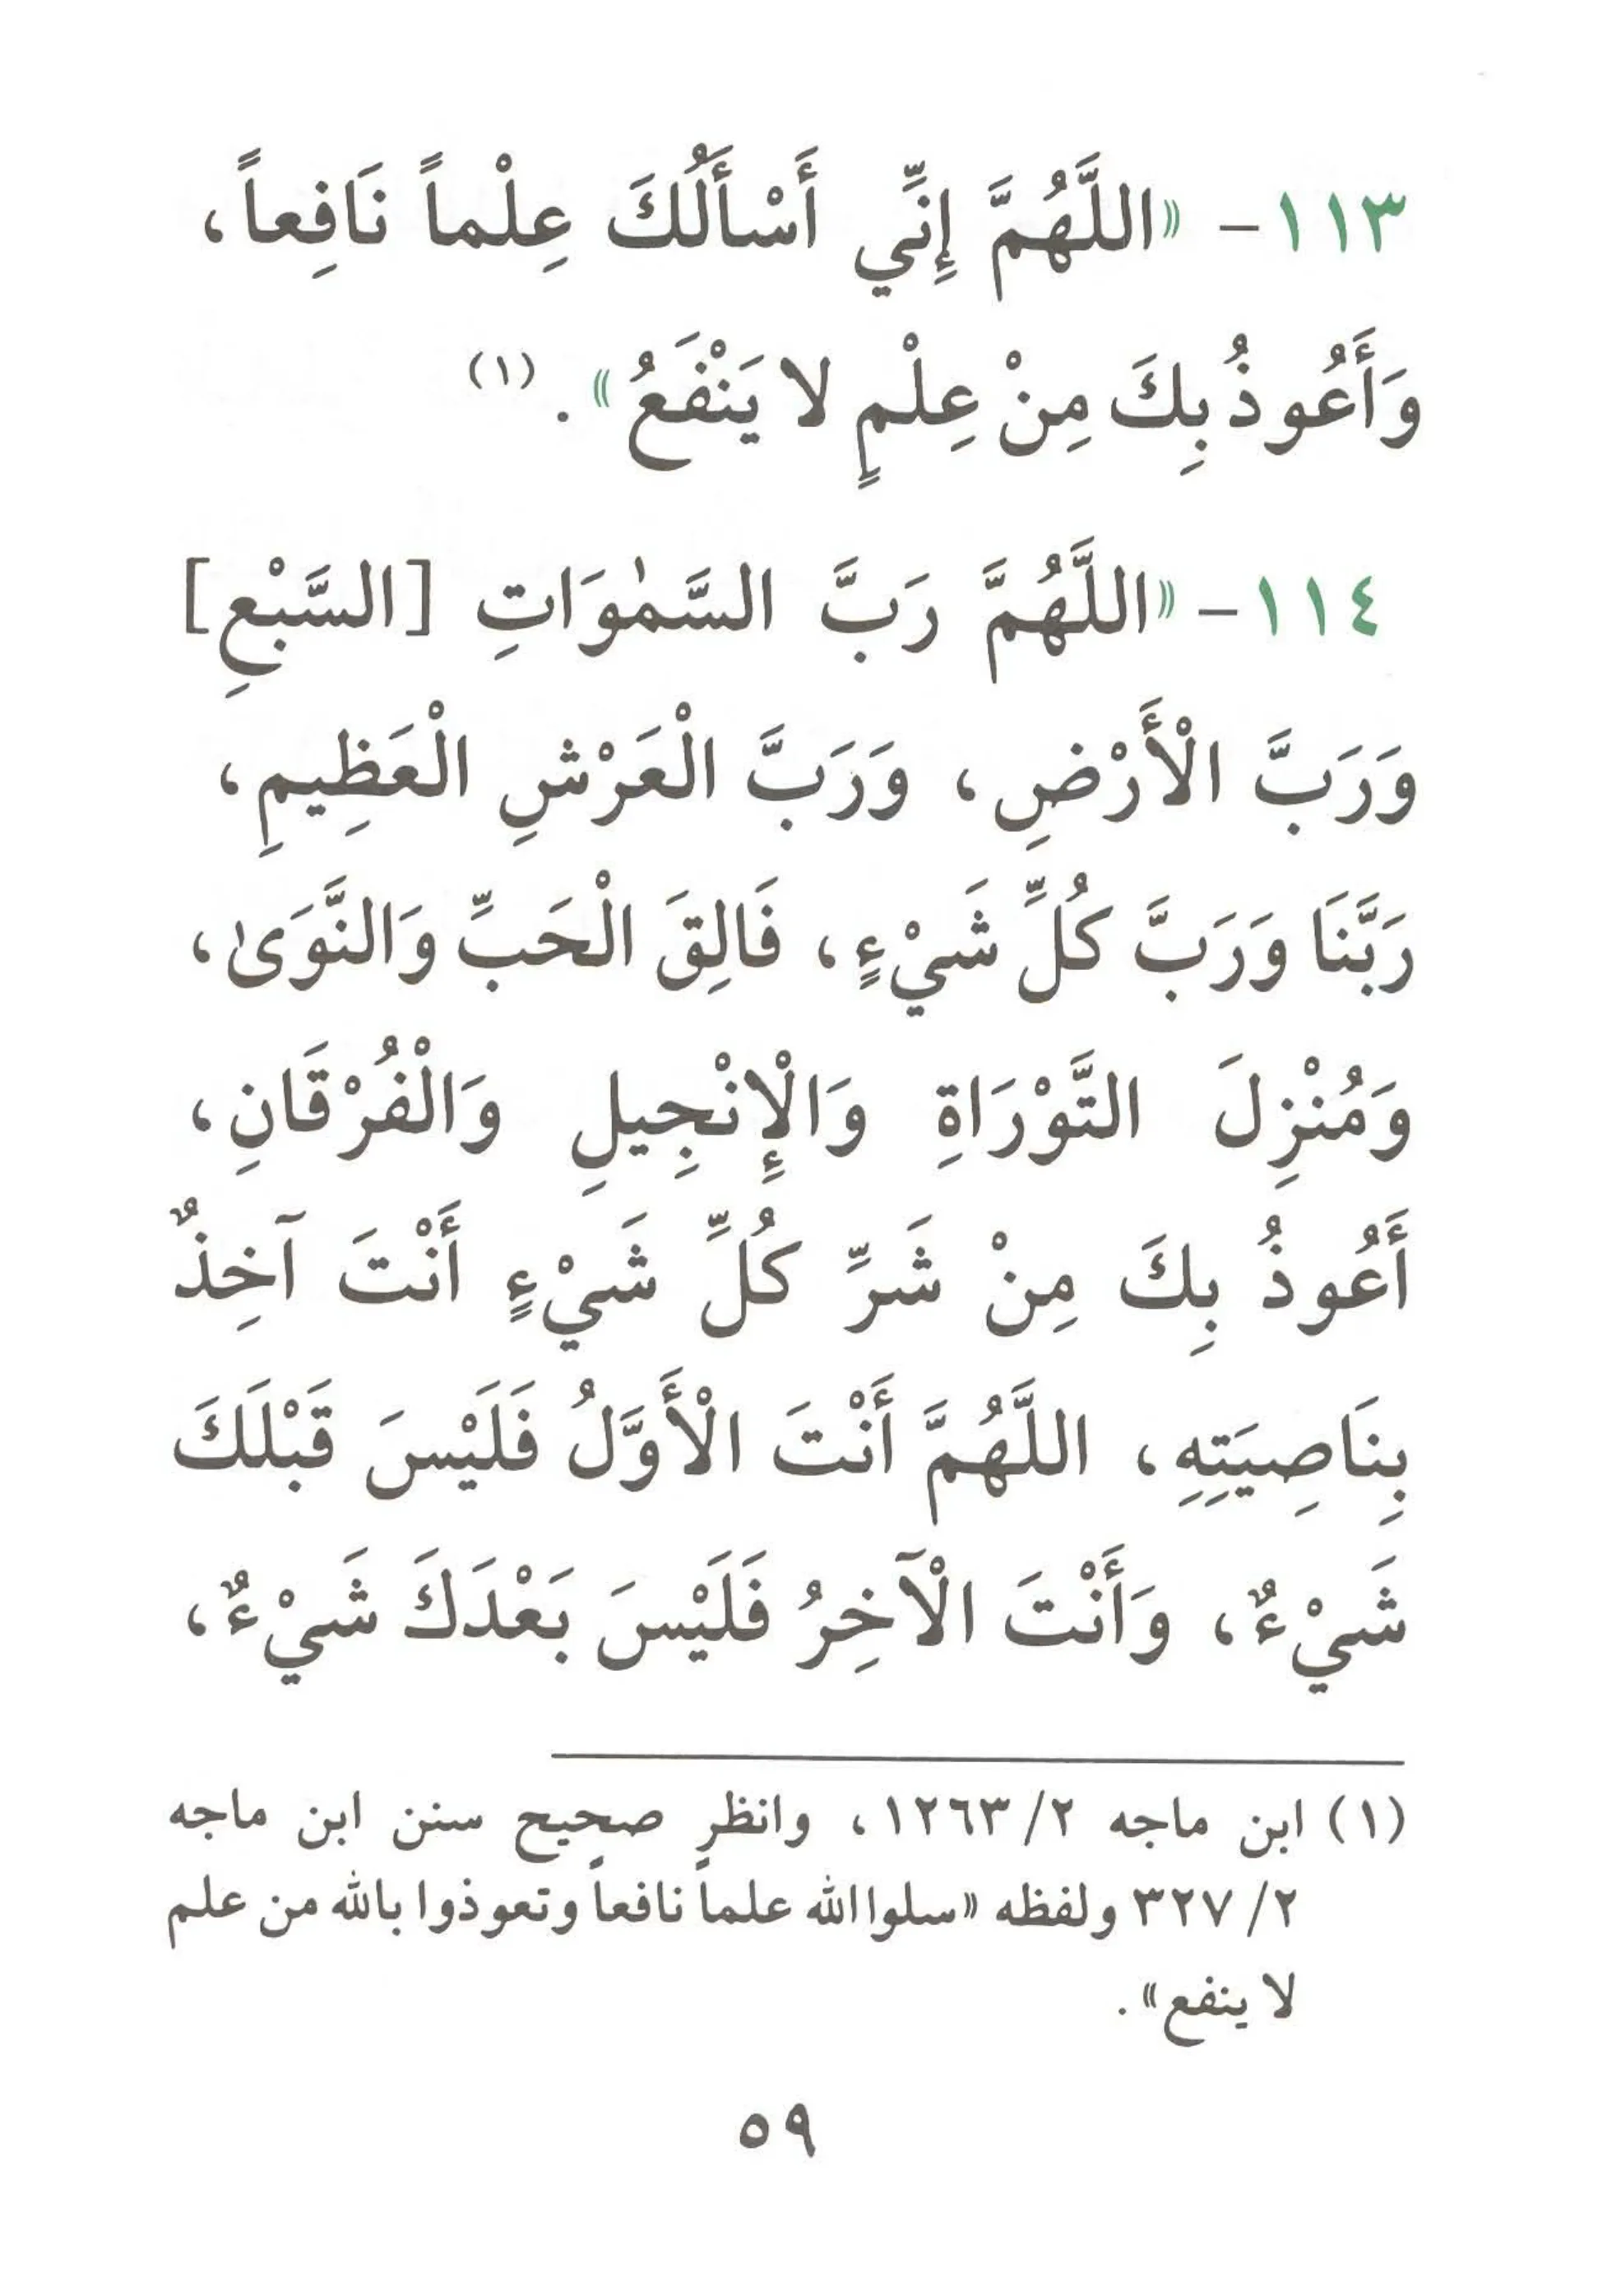 ١١٣- «اللَّهُمَّ إِنِّي أَسْأَلُكَ عِلْماً نَافِعاً،
وَأَعُوذُ بِكَ مِنْ عِلْمٍ لا يَنْفَعُ» . (١)
١١٤- «اللَّهُمَّ رَبَّ السَّمٰوَاتِ [السَّبْعِ]
وَرَبَّ الْأَرْضِ، وَرَبَّ الْعَرْشِ الْعَظِيمِ،
رَبَّنَا وَرَبَّ كُلِّ شَيْءٍ، فَالِقَ الْحَبِّ وَالنَّوَىٰ،
وَمُنْزِلَ التَّوْرَاةِ وَالْإِنْجِيلِ وَالْفُرْقَانِ،
أَعُوذُ بِكَ مِنْ شَرِّ كُلِّ شَيْءٍ أَنْتَ آخِذٌ
بِنَاصِيَتِهِ، اللَّهُمَّ أَنْتَ الْأَوَّلُ فَلَيْسَ قَبْلَكَ
شَيْءٌ، وَأَنْتَ الْآخِرُ فَلَيْسَ بَعْدَكَ شَيْءٌ،
(١) ابن ماجه ٢/ ١٢٦٣، وانظر صحيح سنن ابن ماجه
٢/ ٣٢٧ ولفظه «سلوا الله علماً نافعاً وتعوذوا بالله من علم
لا ينفع» .
٥٩